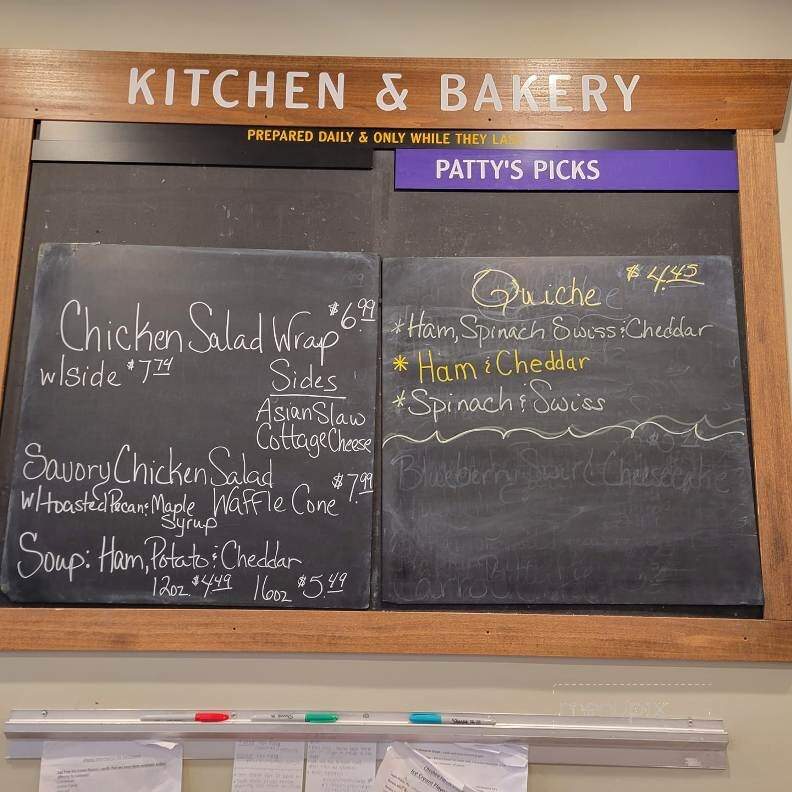 KITCHEN & BAKERY
PREPARED DAILY & ONLY WHILE THEY LAS
PATTY'S PICKS
Chicken Salad Wrap $6.99
w/side $7.74
Sides
Asian Slaw
Cottage Cheese
Savory Chicken Salad
w/toasted Pecan & Maple Syrup Waffle Cone $7.99
Soup: Ham, Potato & Cheddar
12oz. $4.49 16oz $5.49
Quiche $4.45
*Ham, Spinach Swiss & Cheddar
* Ham & Cheddar
*Spinach & Swiss
Blueberry Swirl Cheesecake
Carrot
menupix